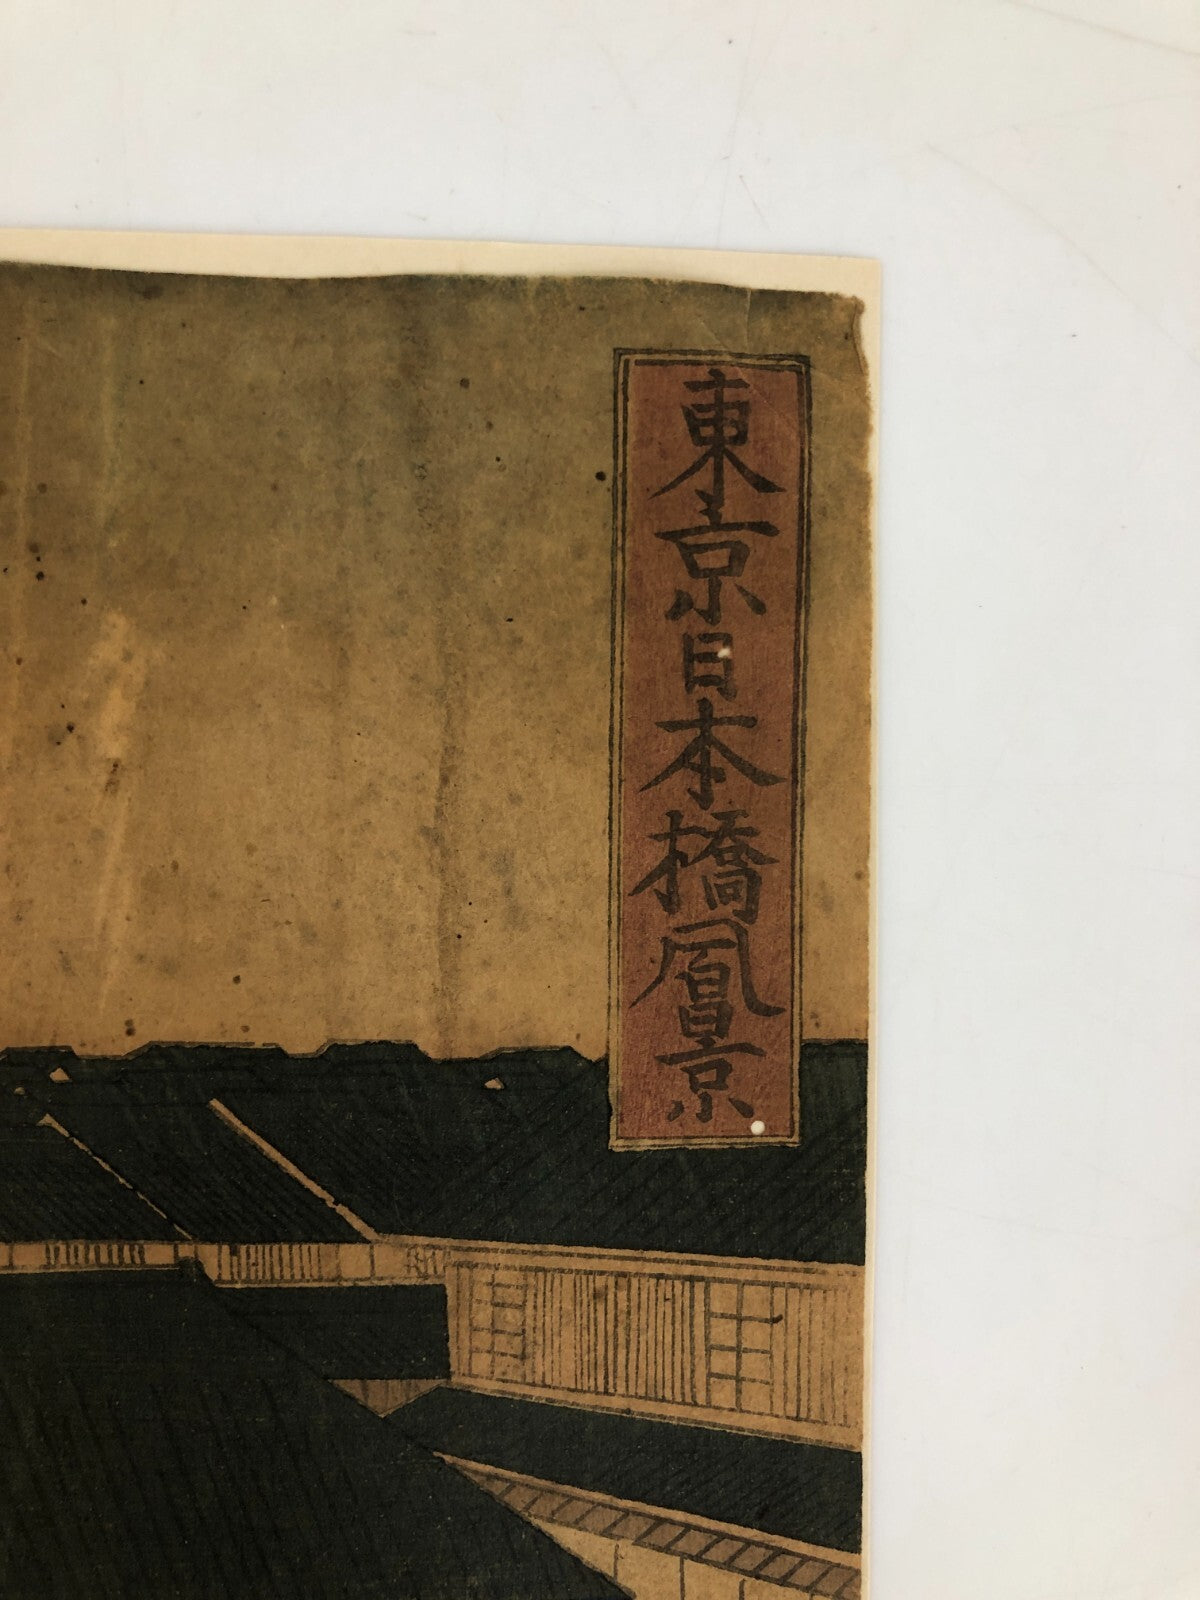 東京日本橋風景